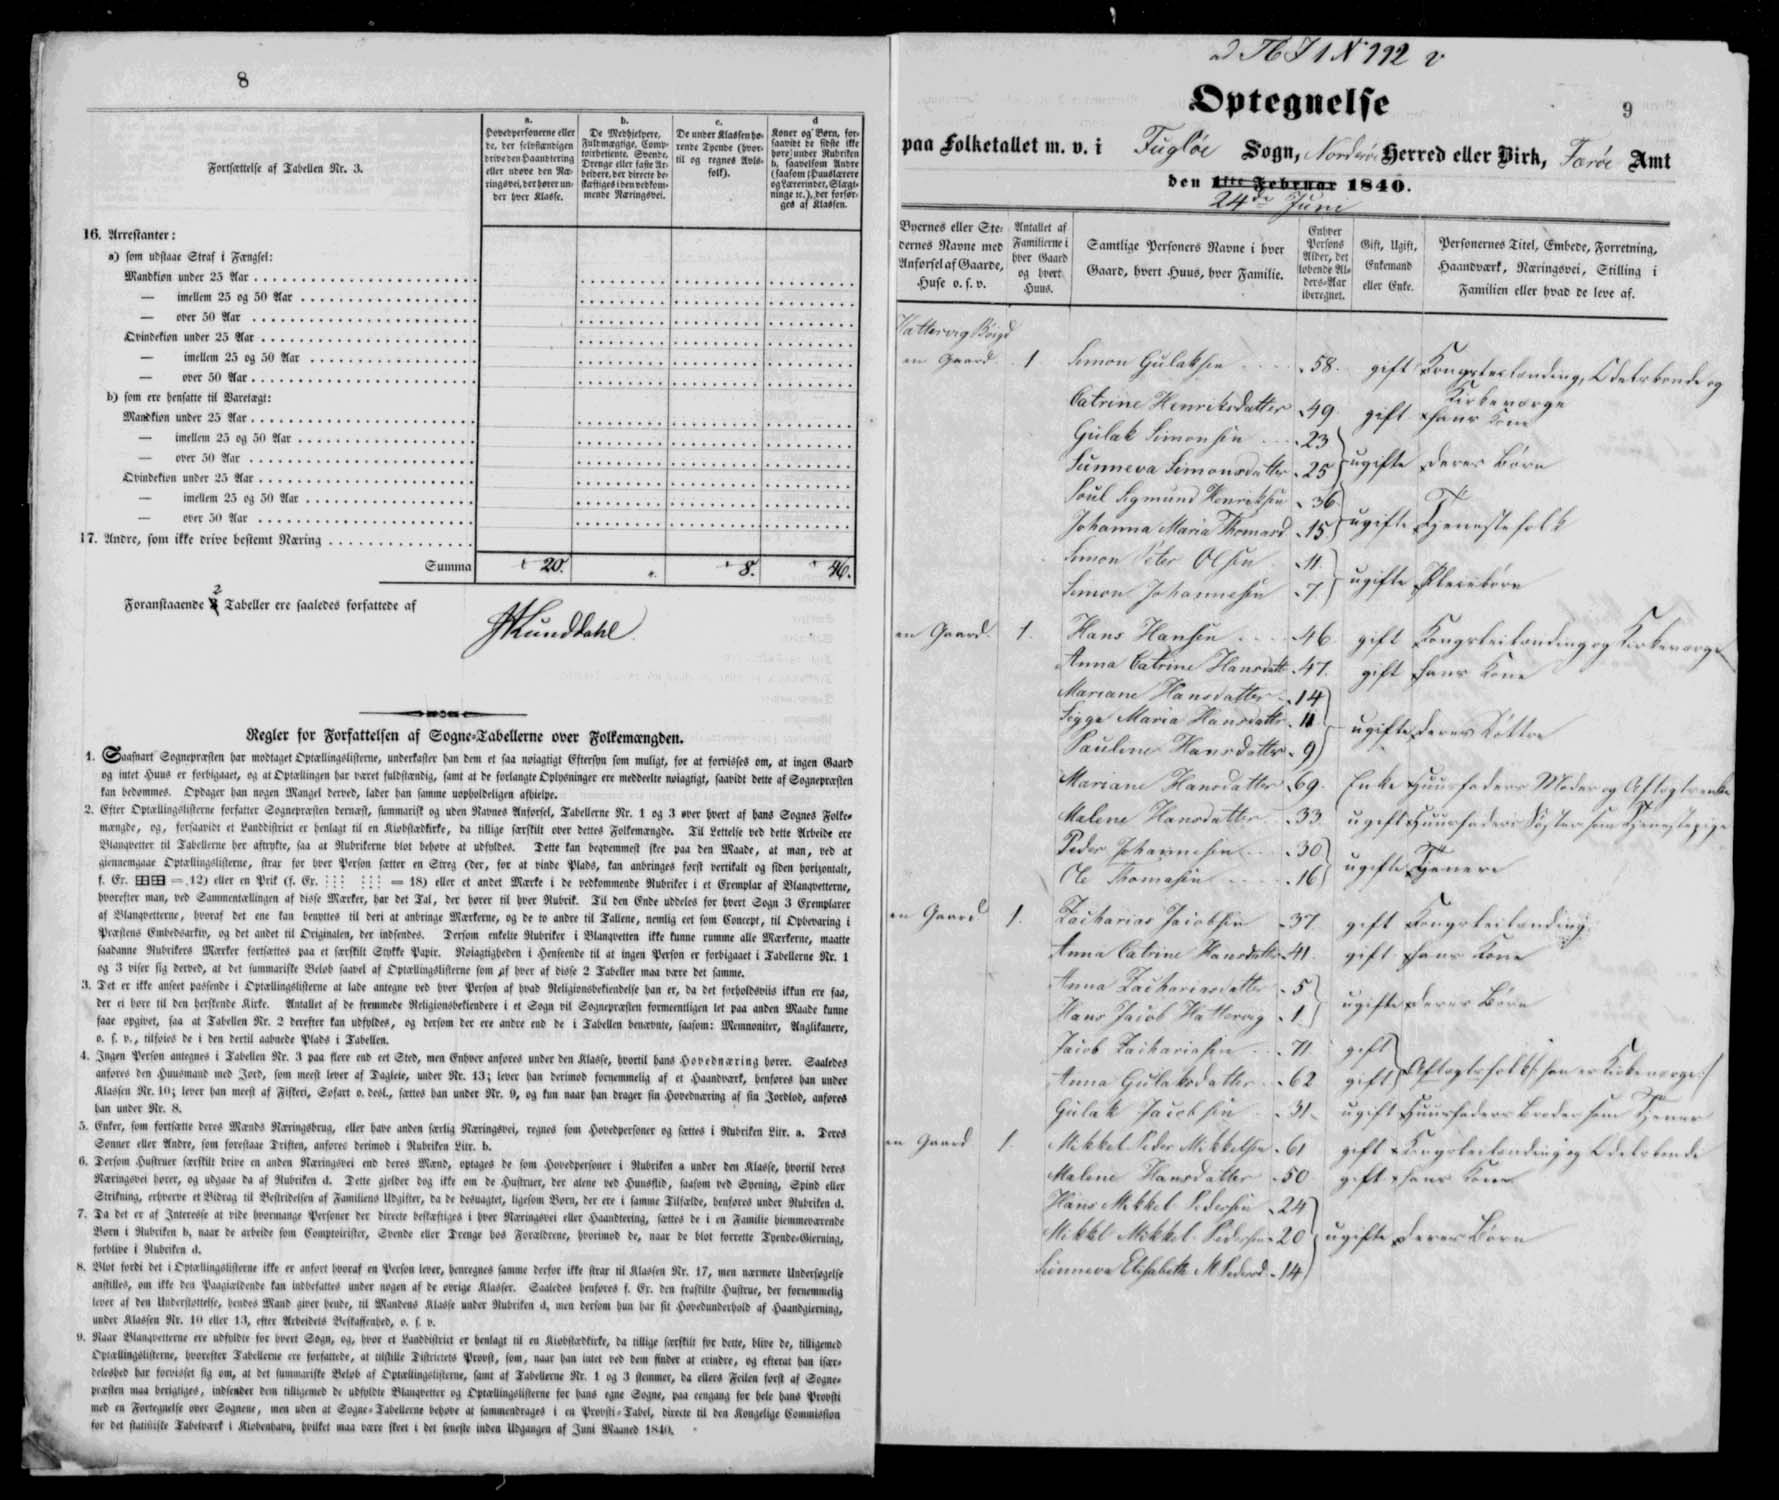 8
Fortsættelse af Tabellen Nr. 3.
a.
Hovedpersonerne eller
de, der selvstændigen
drive den Haandtering
eller udøve den Næ-
ringsvei, der hører un-
der hver Klasse.
b.
De Medhjelpere,
Fuldmægtige, Comp-
toirbetiente, Svende,
Drenge eller faste Ar-
beidere, der directe be-
skæftiges i den vedkom-
mende Næringsvei.
c.
De under Klassen hø-
rende Tyende (hvor-
til og regnes Avls-
folk).
d
Koner og Børn, for-
saavidt de sidste ikke
høre under Rubriken
b, saavelsom Andre
(saasom Huuslærere
og Lærerinder, Slægt-
ninge ic.), der forsør-
ges af Klassen.
16. Arrestanter:
a) som udstaae Straf i Fængsel:
Mandkion under 25 Aar
— imellem 25 og 50 Aar
— over 50 Aar
Qvindekion under 25 Aar
— imellem 25 og 50 Aar
— over 50 Aar
b) som ere hensatte til Varetægt:
Mandkion under 25 Aar
— imellem 25 og 50 Aar
— over 50 Aar
Qvindekion under 25 Aar
— imellem 25 og 50 Aar
— over 50 Aar
17. Andre, som ikke drive bestemt Næring
Summa 20. 8. 46.
Foranstaaende 2 Tabeller ere saaledes forfattede af
Regler for Forfattelsen af Sogne-Tabellerne over Folkemængden.
1. Saasnart Sognepræsten har modtaget Optællingslisterne, underkaster han dem et saa nøiagtigt Eftersyn som muligt, for at forvisses om, at ingen Gaard
og intet Huus er forbigaaet, og at Optællingen har været fuldstændig, samt at de forlangte Oplysninger ere meddeelte nøiagtigt, saavidt dette af Sognepræsten
kan bedømmes. Opdager han nogen Mangel derved, lader han samme uopholdeligen afhielpe.
2. Efter Optællingslisterne forfatter Sognepræsten dernæst, summarisk og uden Navnes Anførsel, Tabellerne Nr. 1 og 3 over hvert af hans Sognes Folke-
mængde, og, forsaavidt et Landdistrict er henlagt til en Kiøbstædkirke, da tillige særskilt over dettes Folkemængde. Til Lettelse ved dette Arbeide ere
Blanqvetter til Tabellerne her aftrykte, saa at Rubrikerne blot behøve at udfyldes. Dette kan beqvemmest skee paa den Maade, at man, ved at
giennemgaae Optællingslisterne, strax for hver Person sætter en Streg (der, for at vinde Plads, kan anbringes først vertikalt og siden horizontalt,
f. Ex. = 12) eller en Prik (f. Ex. = 18) eller et andet Mærke i de vedkommende Rubriker i et Exemplar af Blanqvetterne,
hvorefter man, ved Sammentællingen af disse Mærker, har det Tal, der hører til hver Rubrik. Til den Ende uddeles for hvert Sogn 3 Exemplarer
af Blanqvetterne, hvoraf det ene kan benyttes til deri at anbringe Mærkerne, og de to andre til Tallene, nemlig eet som Concept, til Opbevaring i
Præstens Embedsarkiv, og det andet til Originalen, der indsendes. Dersom enkelte Rubriker i Blanqvetten ikke kunne rumme alle Mærkerne, maatte
saadanne Rubrikers Mærker fortsættes paa et særskilt Stykke Papir. Nøiagtigheden i Henseende til at ingen Person er forbigaaet i Tabellerne Nr. 1
og 3 viser sig derved, at det summariske Beløb saavel af Optællingslisterne som af hver af disse 2 Tabeller maa være det samme.
3. Det er ikke anseet passende i Optællingslisterne at lade antegne ved hver Person af hvad Religionsbekiendelse han er, da det forholdsviis ikkun ere faa,
der ei høre til den herskende Kirke. Antallet af de fremmede Religionsbekiendere i et Sogn vil Sognepræsten formeentligen let paa anden Maade kunne
faae opgivet, saa at Tabellen Nr. 2 derefter kan udfyldes, og dersom der ere andre end de i Tabellen benævnte, saasom: Memnoniter, Anglikanere,
o. s. v., tilføies de i den dertil aabnede Plads i Tabellen.
4. Ingen Person antegnes i Tabellen Nr. 3 paa flere end eet Sted, men Enhver anføres under den Klasse, hvortil hans Hovednæring hører. Saaledes
anføres den Huusmand med Jord, som meest lever af Dagleie, under Nr. 13; lever han derimod fornemmelig af et Haandværk, henføres han under
Klassen Nr. 10; lever han meest af Fiskeri, Søfart o. desl., sættes han under Nr. 9, og kun naar han drager sin Hovednæring af sin Jordlod, anføres
han under Nr. 8.
5. Enker, som fortsætte deres Mænds Næringsbrug, eller have anden særlig Næringsvei, regnes som Hovedpersoner og sættes i Rubriken Litr. a. Deres
Sønner eller Andre, som forestaae Driften, anføres derimod i Rubriken Litr. b.
6. Dersom Hustruer særskilt drive en anden Næringsvei end deres Mænd, optages de som Hovedpersoner i Rubriken a under den Klasse, hvortil deres
Næringsvei hører, og udgaae da af Rubriken d. Dette gjelder dog ikke om de Hustruer, der alene ved Huusflid, saasom ved Syening, Spind eller
Strikning, erhverve et Bidrag til Bestridelsen af Familiens Udgifter, da de desuagtet, ligesom Børn, der ere i samme Tilfælde, henføres under Rubriken d.
7. Da det er af Interesse at vide hvormange Personer der directe beskæftiges i hver Næringsvei eller Haandtering, sættes de i en Familie hiemmeværende
Børn i Rubriken b, naar de arbeide som Comptoirister, Svende eller Drenge hos Forældrene, hvorimod de, naar de blot forrette Tyende-Gierning,
forblive i Rubriken d.
8. Blot fordi det i Optællingslisterne ikke er anført hvoraf en Person lever, henregnes samme derfor ikke strax til Klassen Nr. 17, men nærmere Undersøgelse
anstilles, om ikke den Paagiældende kan indbefattes under nogen af de øvrige Klasser. Saaledes henføres f. Ex. den fraskilte Hustrue, der fornemmelig
lever af den Understøttelse, hendes Mand giver hende, til Mandens Klasse under Rubriken d, men dersom hun har sit Hovedunderhold af Haandgierning,
under Klassen Nr. 10 eller 13, efter Arbeidets Beskaffenhed, o. s. v.
9. Naar Blanqvetterne ere udfyldte for hvert Sogn, og, hvor et Landdistrict er henlagt til en Kiøbstædkirke, da tillige særskilt for dette, blive de, tilligemed
Optællingslisterne, hvorefter Tabellerne ere forfattede, at tilstille Districtets Provst, som, naar han intet ved dem finder at erindre, og efterat han især-
deleshed har forvisset sig om, at det summariske Beløb af Optællingslisterne, samt af Tabellerne Nr. 1 og 3 stemmer, da ellers Feilen først af Sogne-
præsten maa berigtiges, indsender dem tilligemed de udfyldte Blanqvetter og Optællingslisterne for hans egne Sogne, paa eengang for hele hans Provsti
med en Fortegnelse over Sognene, men uden at Sogne-Tabellerne behøve at sammendrages i en Provsti-Tabel, directe til den Kongelige Commission
for det statistiske Tabelværk i Kiøbenhavn, hvilket maa være skeet i det seneste inden Udgangen af Juni Maaned 1840.
Optegnelse
9
paa Folketallet m. v. i Fugløe Sogn, Norderøe Herred eller Birk, Færøe Amt
den 1ste Februar 1840.
24de Juni
Byernes eller Ste-
dernes Navne med
Anførsel af Gaarde,
Huse o. s. v.
Antallet af
Familierne i
hver Gaard
og hvert
Huus.
Samtlige Personers Navne i hver
Gaard, hvert Huus, hver Familie.
Enhver
Persons
Alder, det
løbende Al-
ders-Aar
iberegnet.
Gift, Ugift,
Enkemand
eller Enke.
Personernes Titel, Embede, Forretning,
Haandværk, Næringsvei, Stilling i
Familien eller hvad de leve af.
Hattervig Bøigd
en Gaard 1 Simon Gulaksen 58. gift Kongsleilænding, Odelsbonde og
Kirkeværge
Catrine Henriksdatter 49. gift hans Kone
Gulak Simonsen 23
Sunneva Simonsdatter 25 ugifte deres Børn
Poul Sigmund Henriksen 36
Johanna Maria Thomasd 15 ugifte Tjenestefolk
Simon Peter Olsen 11
Simon Johannesen 7 ugifte Pleiebørn
en Gaard. 1. Hans Hansen 46 gift Kongsleilænding og Kirkeværge
Anna Catrine Hansdatt 47. gift hans Kone
Mariane Hansdatter 14
Sigga Maria Hansdattr 11 ugifte deres Døttre
Pauline Hansdatter 9
Mariane Hansdatter 69. Enke Huusfaders Moder og Aftægtsenke
Malene Hansdatter 33 ugift Huusfaders Søster som Tjenestepige
Peder Johannesen 30
Ole Thomasen 16 ugifte Tjenere
en Gaard 1. Zacharias Jacobsen 37 gift Kongsleilænding
Anna Catrine Hansdatter 41. gift hans Kone
Anna Zachariasdatter 5
Hans Jacob Hattervig 1 ugifte deres Børn
Jacob Zachariasen 71 gift
Anna Gulaksdatter 62 gift Aftægtsfolk /: han er Kirkeværge :/
Gulak Jacobsen 31 ugift Huusfaders Broder som Tjener
en Gaard 1. Mikkel Peder Mikkelsen 61 gift Kongsleilænding og Odelsbonde
Malene Hansdatter 50 gift hans Kone
Hans Mikkel Pedersen 24
Mikkel Mikkel Pedersen 20 ugifte deres Børn
Sunneva Elisabeth M Pedersd 14